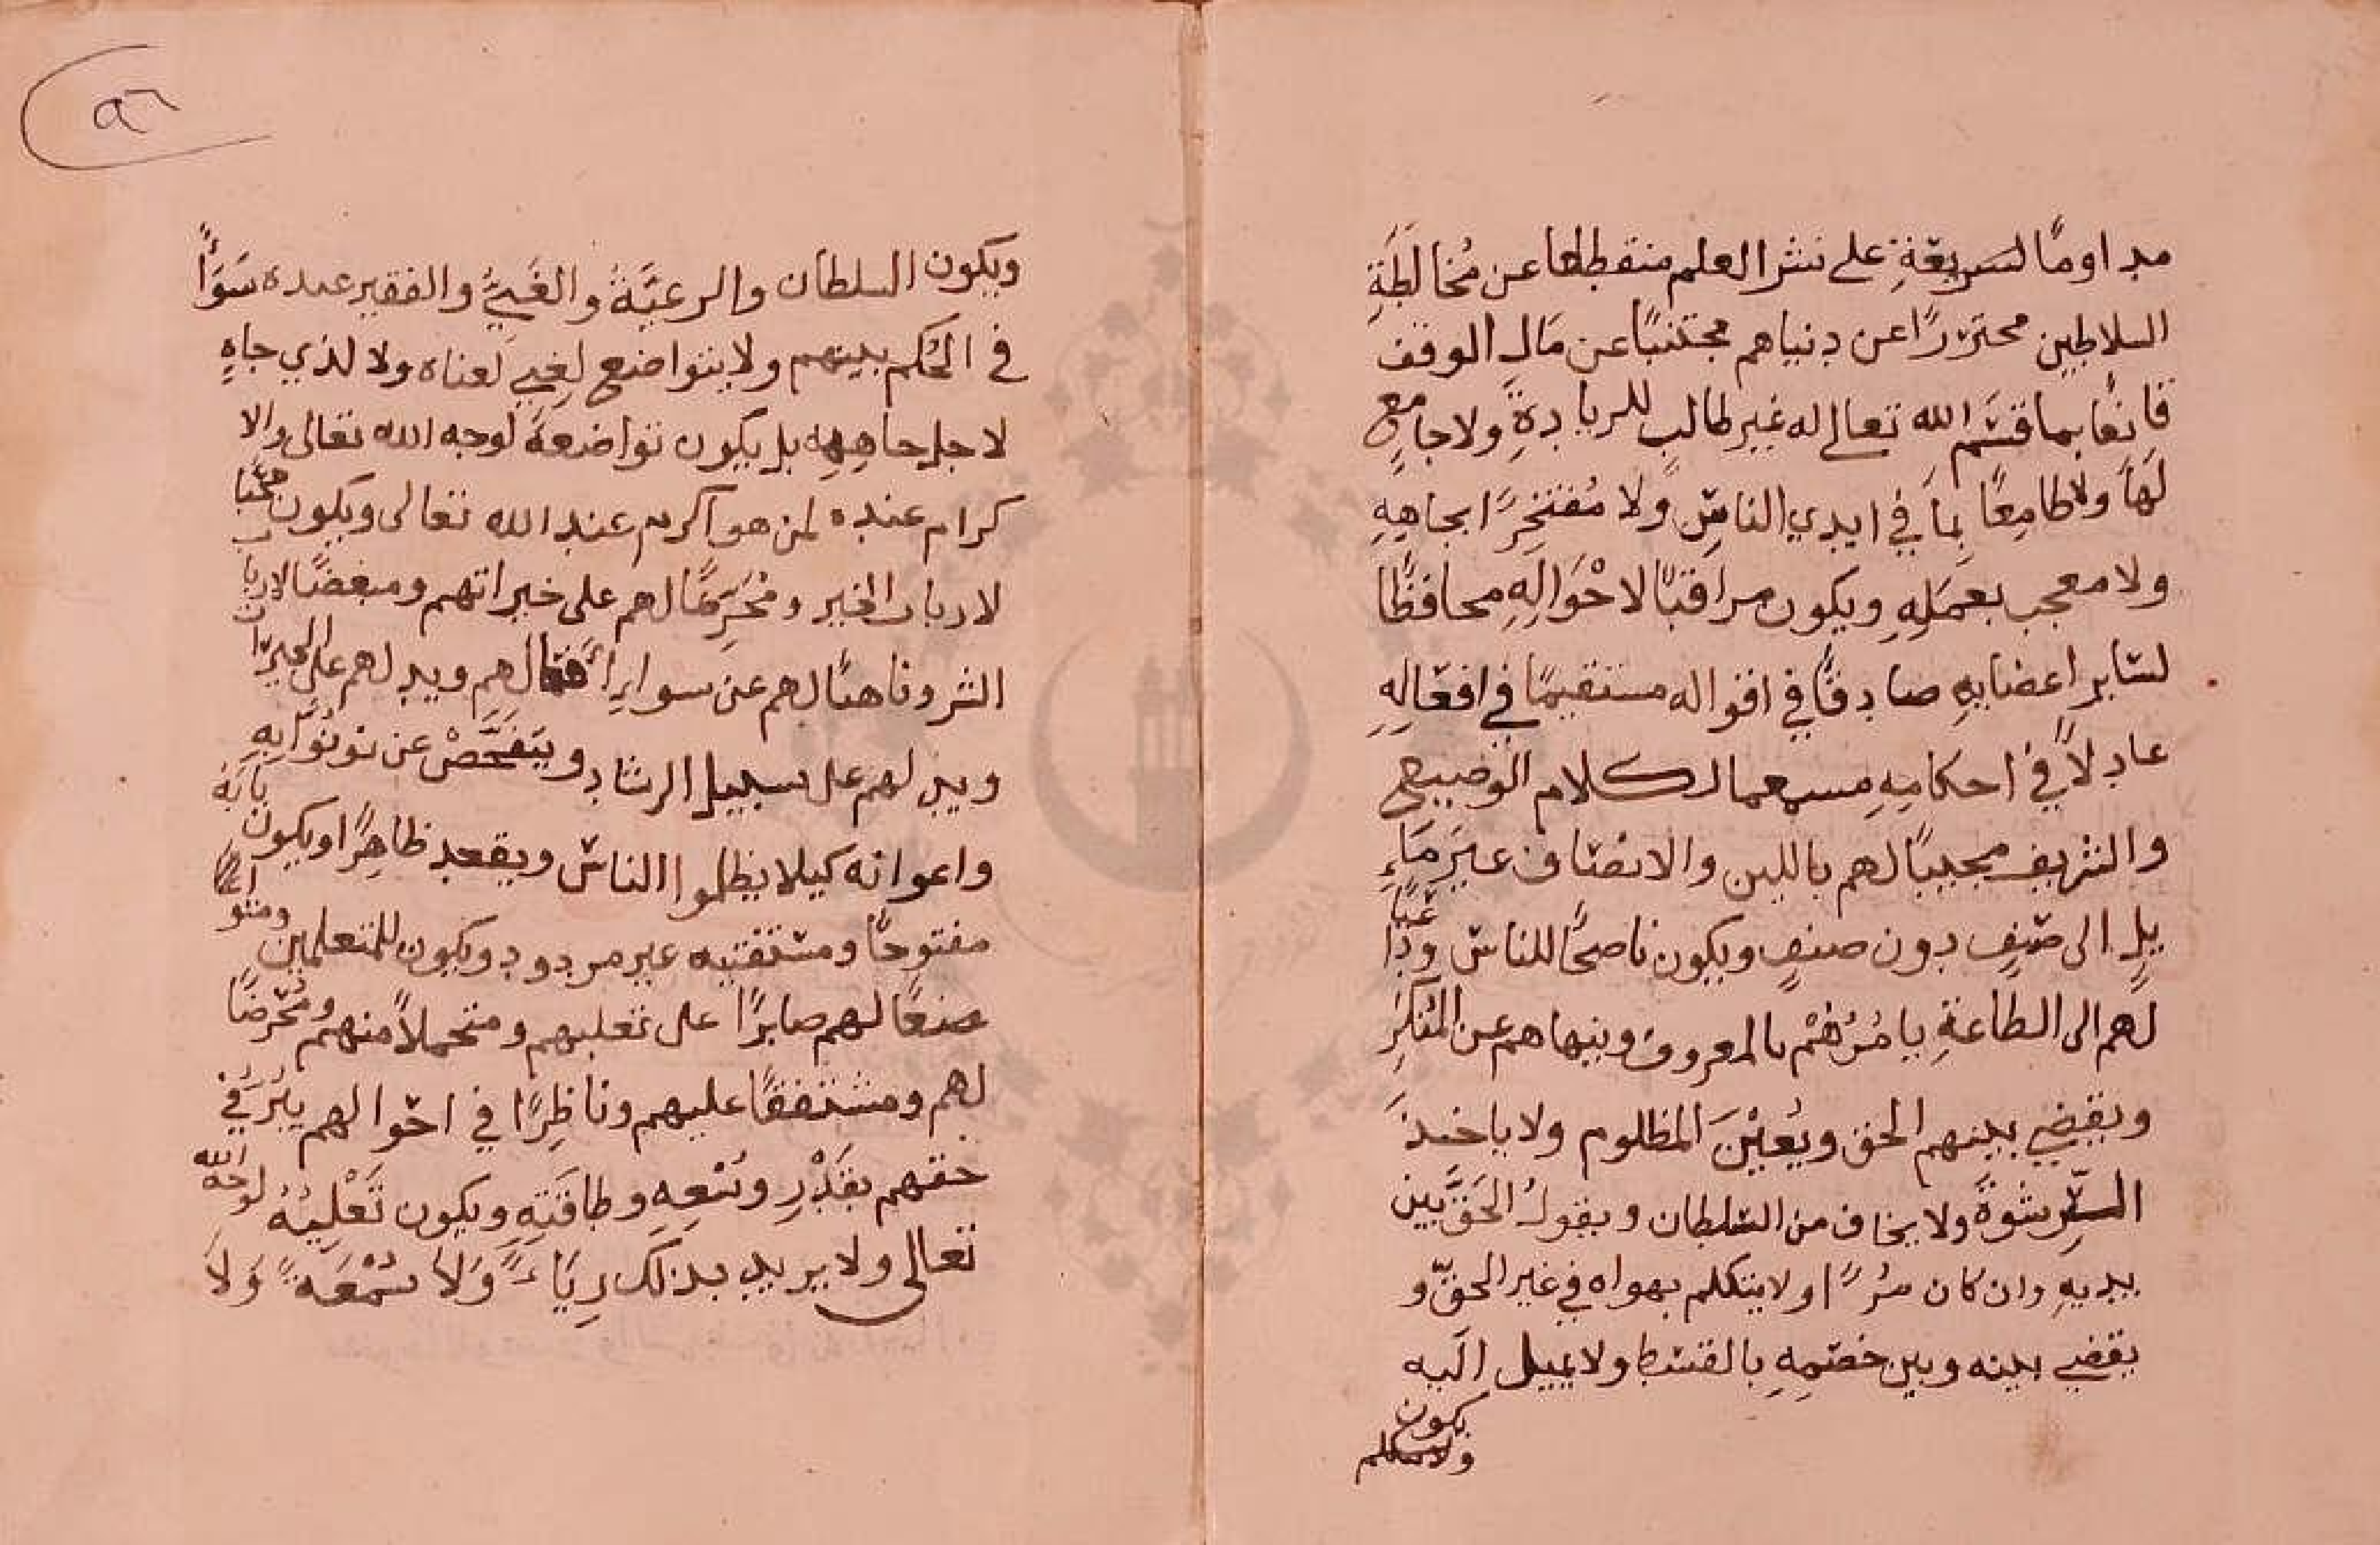 مداومًا لشريعَةِ على نشر العلم منقطعا عن مُخالَطَةِ
السلاطين محترزًا عن دنياهم مجتنبًا عن مَال الوقف
قانعًا بما قسَم الله تعالى له غير طالبٍ للزيادةِ ولا جامعٍ
لَها ولا طامِعًا بِما في ايدي الناسِ ولا مُفتخِرًا بجاهِهِ
ولا معجب بعمَلِهِ ويكون مراقبًا لاحْوَالِهِ محافظًا
لسَاير اعضايِهِ صادقًا في اقواله مستقيمًا في افعَالِهِ
عادِلاً في احكامِهِ مسمعا لكلام الوضيع
والشريف مجيبًا لهم باللين والانصَاف غيرَ مَاءِ
يلٍ الى صنفٍ دون صنفٍ ويكون ناصحًا للناس
لَهم الى الطاعةِ يامُرُهُمْ بالمعروف وينهاهم عن المُنكَرِ
ويقضي بينهم الحق ويُعيْنَ المظلوم ولا ياخذ
الرِشوةً ولا يخاف من السُلطان ويقولُ الحَقَّ بين
يديهِ وان كان مُرًّا ولا يتكلم بهواه في غير الحقّ و
يقضي بينه وبين خصَمِهِ بالقسْط ولا يميل اليه
يكون
ولا يتكلم
٩٦
ويكون السلطان والرعيَّةُ والغَنيُّ والفقير عنده سَوَاًء
في الحُكم بينهم ولا يتواضع لِغنيٍ لغناه ولا لذي جاهٍ
لاجل جاهِهِ بل يكون تواضعهَ لوجه الله تعالى والا
كرام عنده لمن هو اكرم عند الله تعالى ويكون محبًا
لارباب الخير ومُحَرِّضًا لهم على خيراتهم ومبغضًا لارباب
الشر وناهيًا لهم عن سوا ويدلهم على الخيرات
ويدلهم على سبيل الرشاد ويتفَحَّصْ عن نوُّابِهِ
واعوانه كيلا يظلموا الناسَ ويقعد ظاهِرًا ويكون بابُهُ
مفتوحًا ومستفتيه غير مردود ويكون للمتعلمين ومتوا
ضعًا لهم صابرًا على تعليهم ومتحملاً منهم ومُحَرّضًا
لهم ومشفقًا عليهم وناظِرًا في احَوالهم في
حقهم بقَدْرِ وُسْعِهِ وطاقَتِهِ ويكون تَعْلِيمُهُ لوجه الله
تعالى ولا يريد بذلك رِيَاءً وَلا سُمْعَةً وَلَا